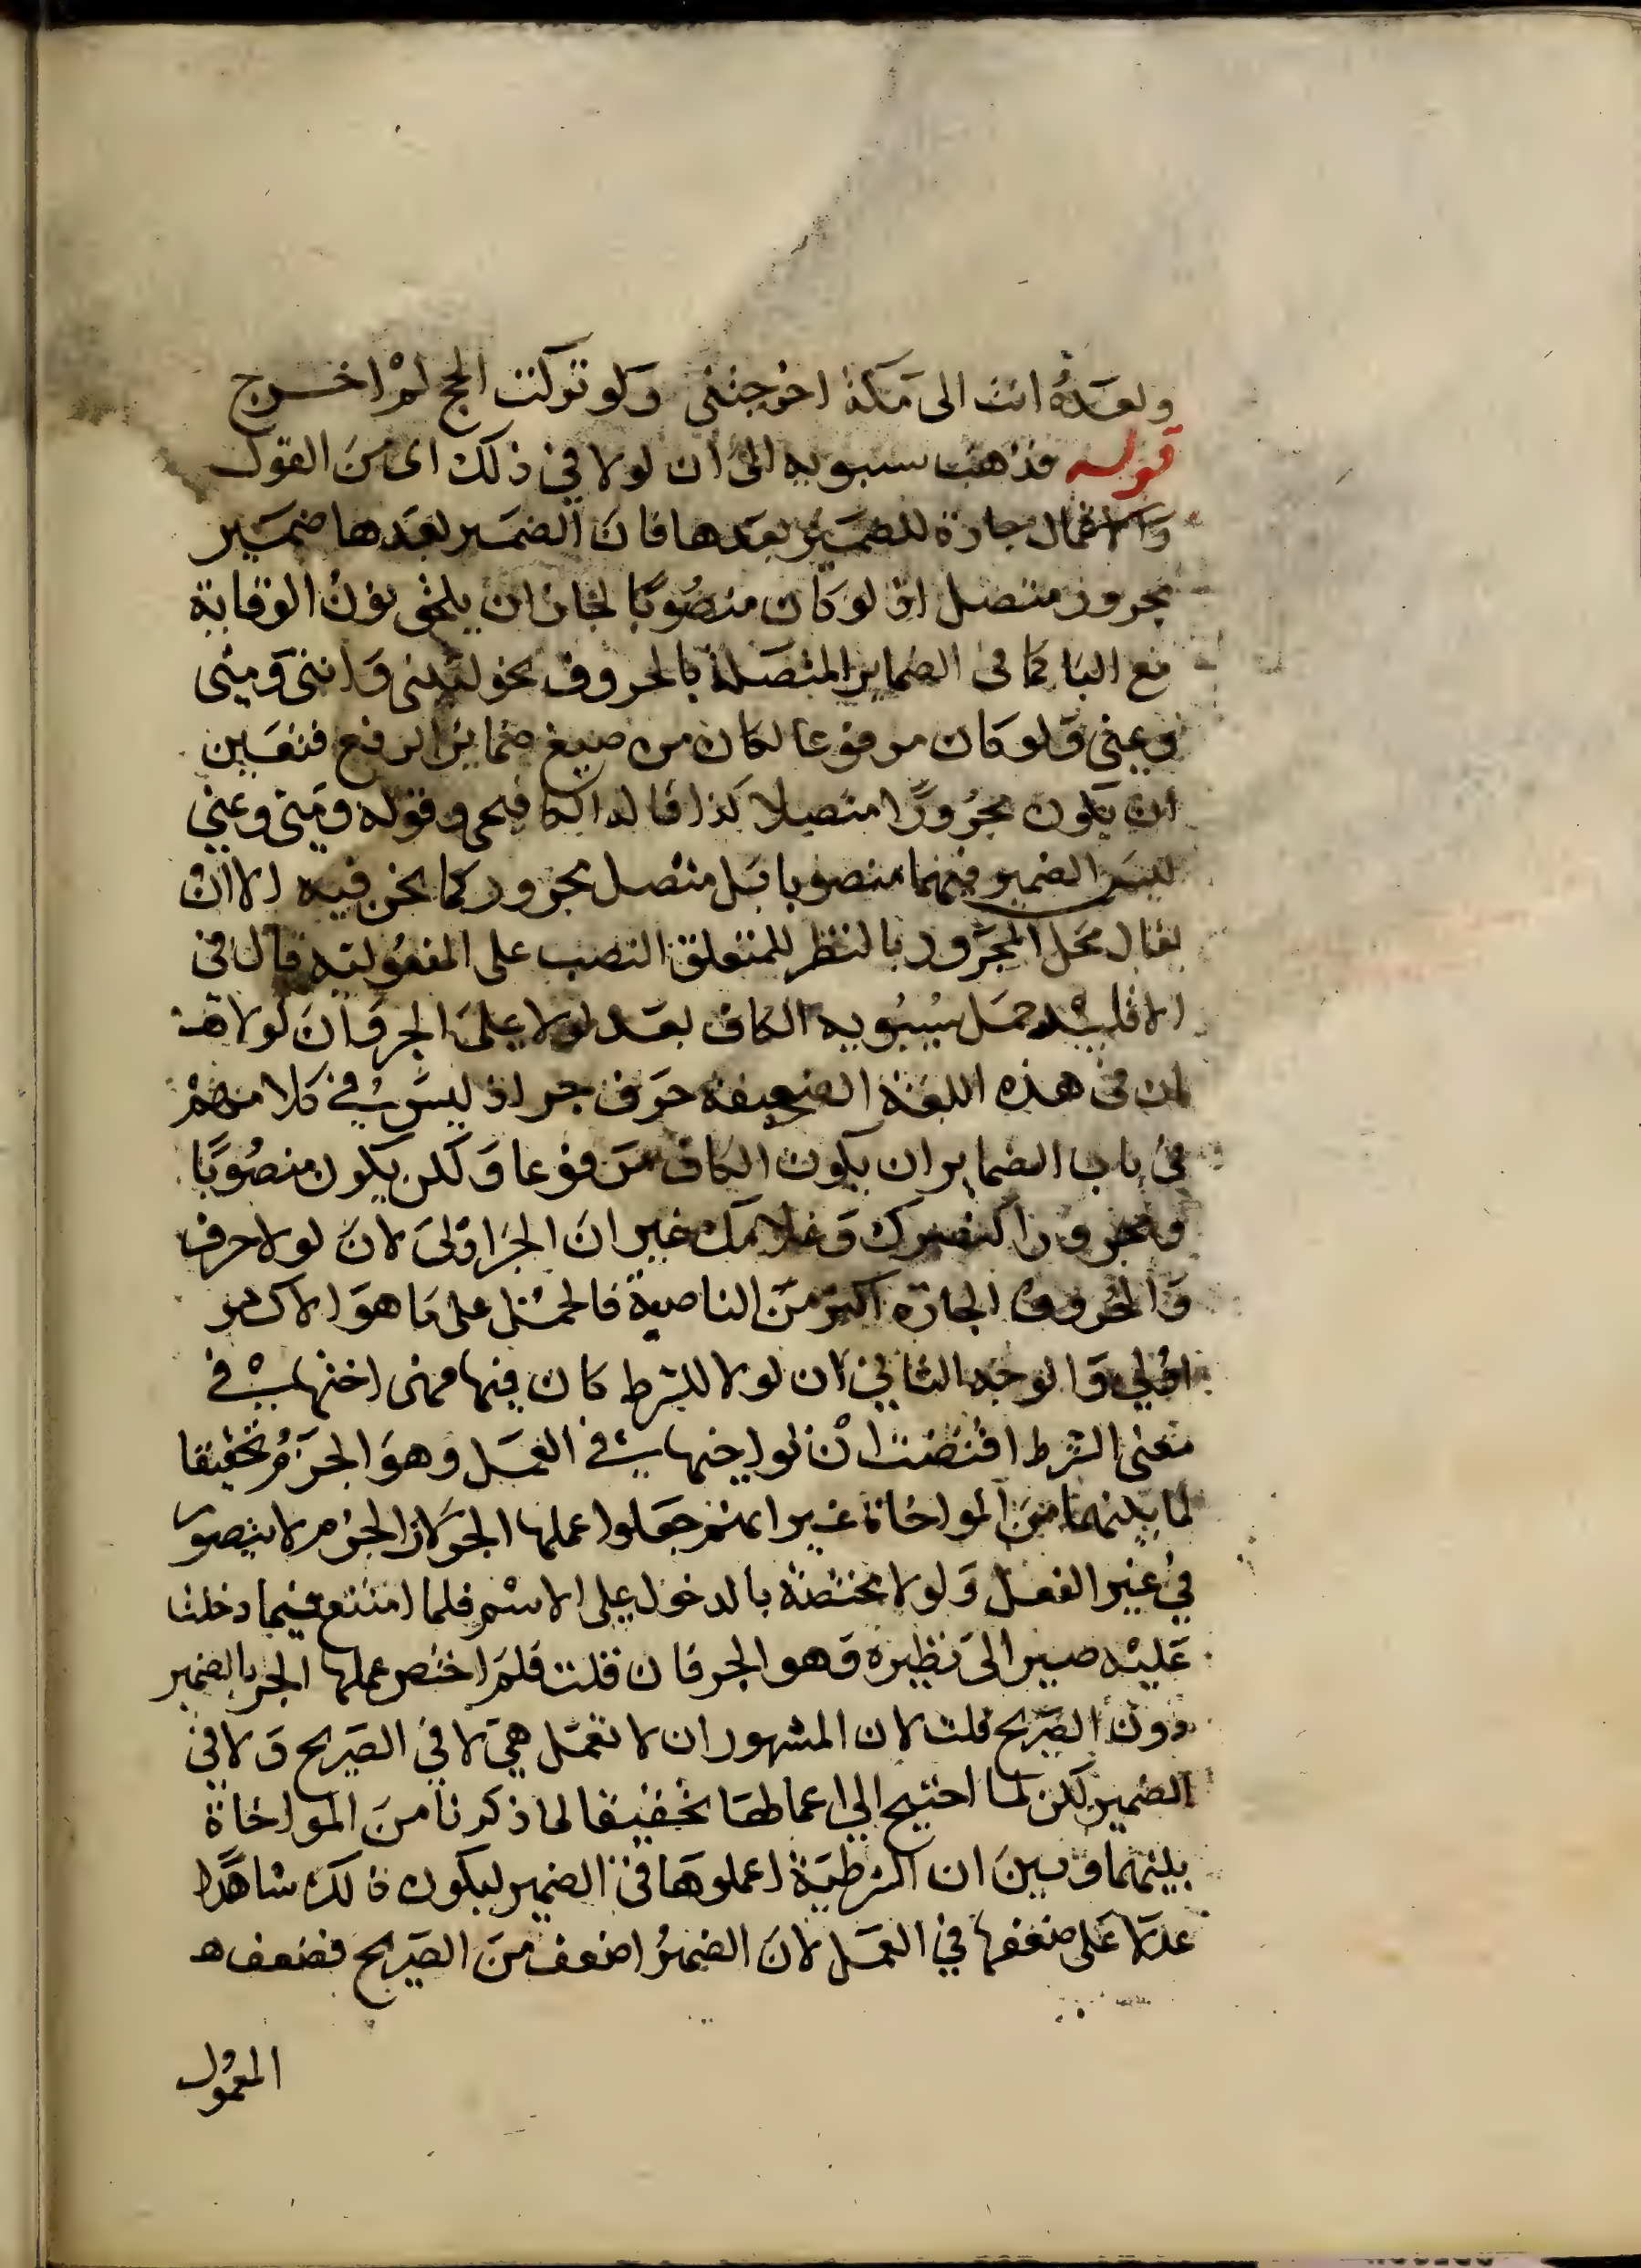 وبعده انت الى مكة اخرجتنى ولو تركت الحج لم اخرج
قوله فذهب سيبويه الى ان لولا في ذلك اى من القول
جارة للضمير بعدها فان الضمير بعدها ضمير
مجرور متصل اذ لو كان منصوبا لجاز ان يلحق نون الوقاية
مع اليا كما فى الضماير المتصلة بالحروف نحو ليتنى واننى ومنى
وعنى ولو كان مرفوعا لكان من صيغ ضماير الرفع فتعين
ان يكون مجرورا متصلا كذا قاله الكافيجى وقوله ومنى وعنى
ليس الضمير فيهما منصوبا بل متصل مجرور كما نحن فيه الا ان
يقال محل المجرور بالنظر للمتعلق النصب على المفعولية قال فى
الاقليد حمل سيبويه الكاف بعد لولا على الجر وان لولا هنا
ان فى هذه اللغة الضعيفة حرف جر اذ ليس في كلامهم
فى باب الضماير ان يكون الكاف مرفوعا ولكن يكون منصوبا
ومجرورا كنصرك وغلامك غير ان الجر اولى لان لولا حرف
والحروف الجارة اكثر من الناصبة فالحمل على ما هو الاكثر
اولى والوجه الثاني ان لولا للشرط كان فيها معنى اختها في
معنى الشرط اقتضت ان تواخيها في العمل وهو الجزم تحقيقا
لما بينهما من المواخاة غير انهم جعلوا عملها الجر لان الجزم لا يتصور
في غير الفعل ولولا مختصة بالدخول على الاسم فلما امتنع فيما دخلت
عليه صير الى نظيره وهو الجر فان قلت فلم اختص عملها الجر بالضمير
دون الصريح قلت لان المشهور ان لا تعمل هى لا في الصريح ولا في
الضمير لكن لما احتيج الى اعمالها تحقيقا لما ذكرنا من المواخاة
بينهما وبين ان الشرطية اعملوها فى الضمير ليكون ذلك شاهدا
عدلا على ضعفها في العمل لان الضمير اضعف من الصريح فضعف
المعمول